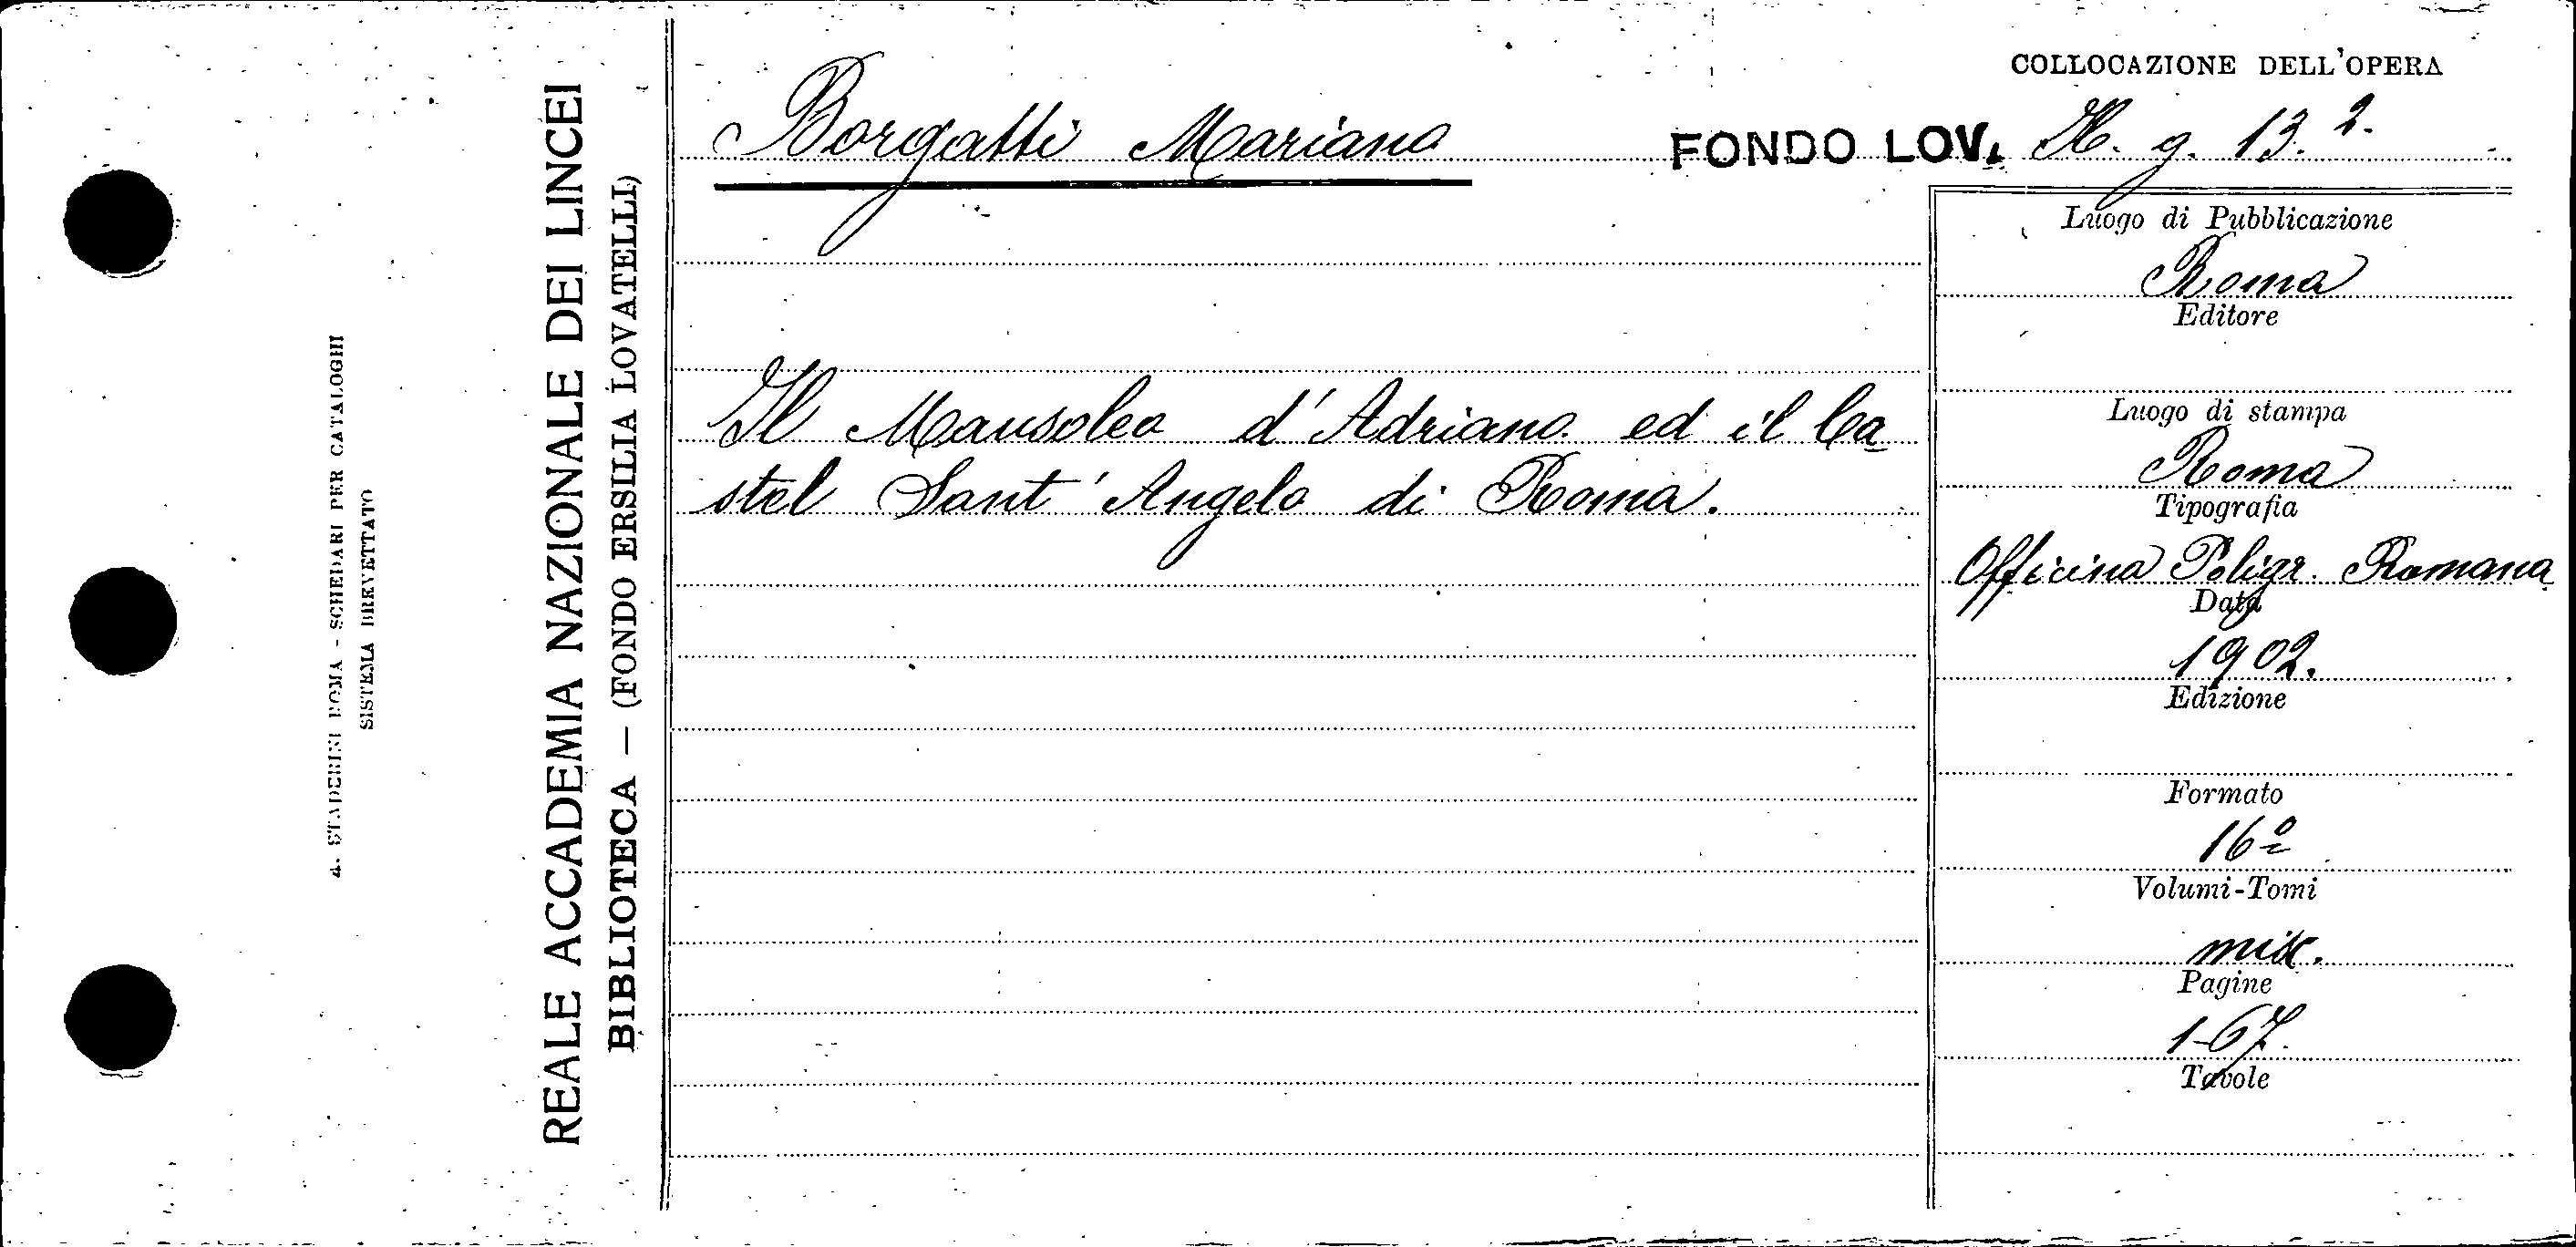 A. STADERINI ROMA - SCHEDARI PER CATALOGHI
SISTEMA BREVETTATO
REALE ACCADEMIA NAZIONALE DEI LINCEI
BIBLIOTECA — (FONDO ERSILIA LOVATELLI)
Borgatti Mariano
Il Mausoleo d'Adriano ed il Ca
stel Sant'Angelo di Roma.
COLLOCAZIONE DELL'OPERA
FONDO LOV. g. 13. 2.
Luogo di Pubblicazione
Roma
Editore
Luogo di stampa
Roma
Tipografia
Officina Poligr. Romana
Data
1902.
Edizione
Formato
16º
Volumi-Tomi
Pagine
1-67.
Tavole